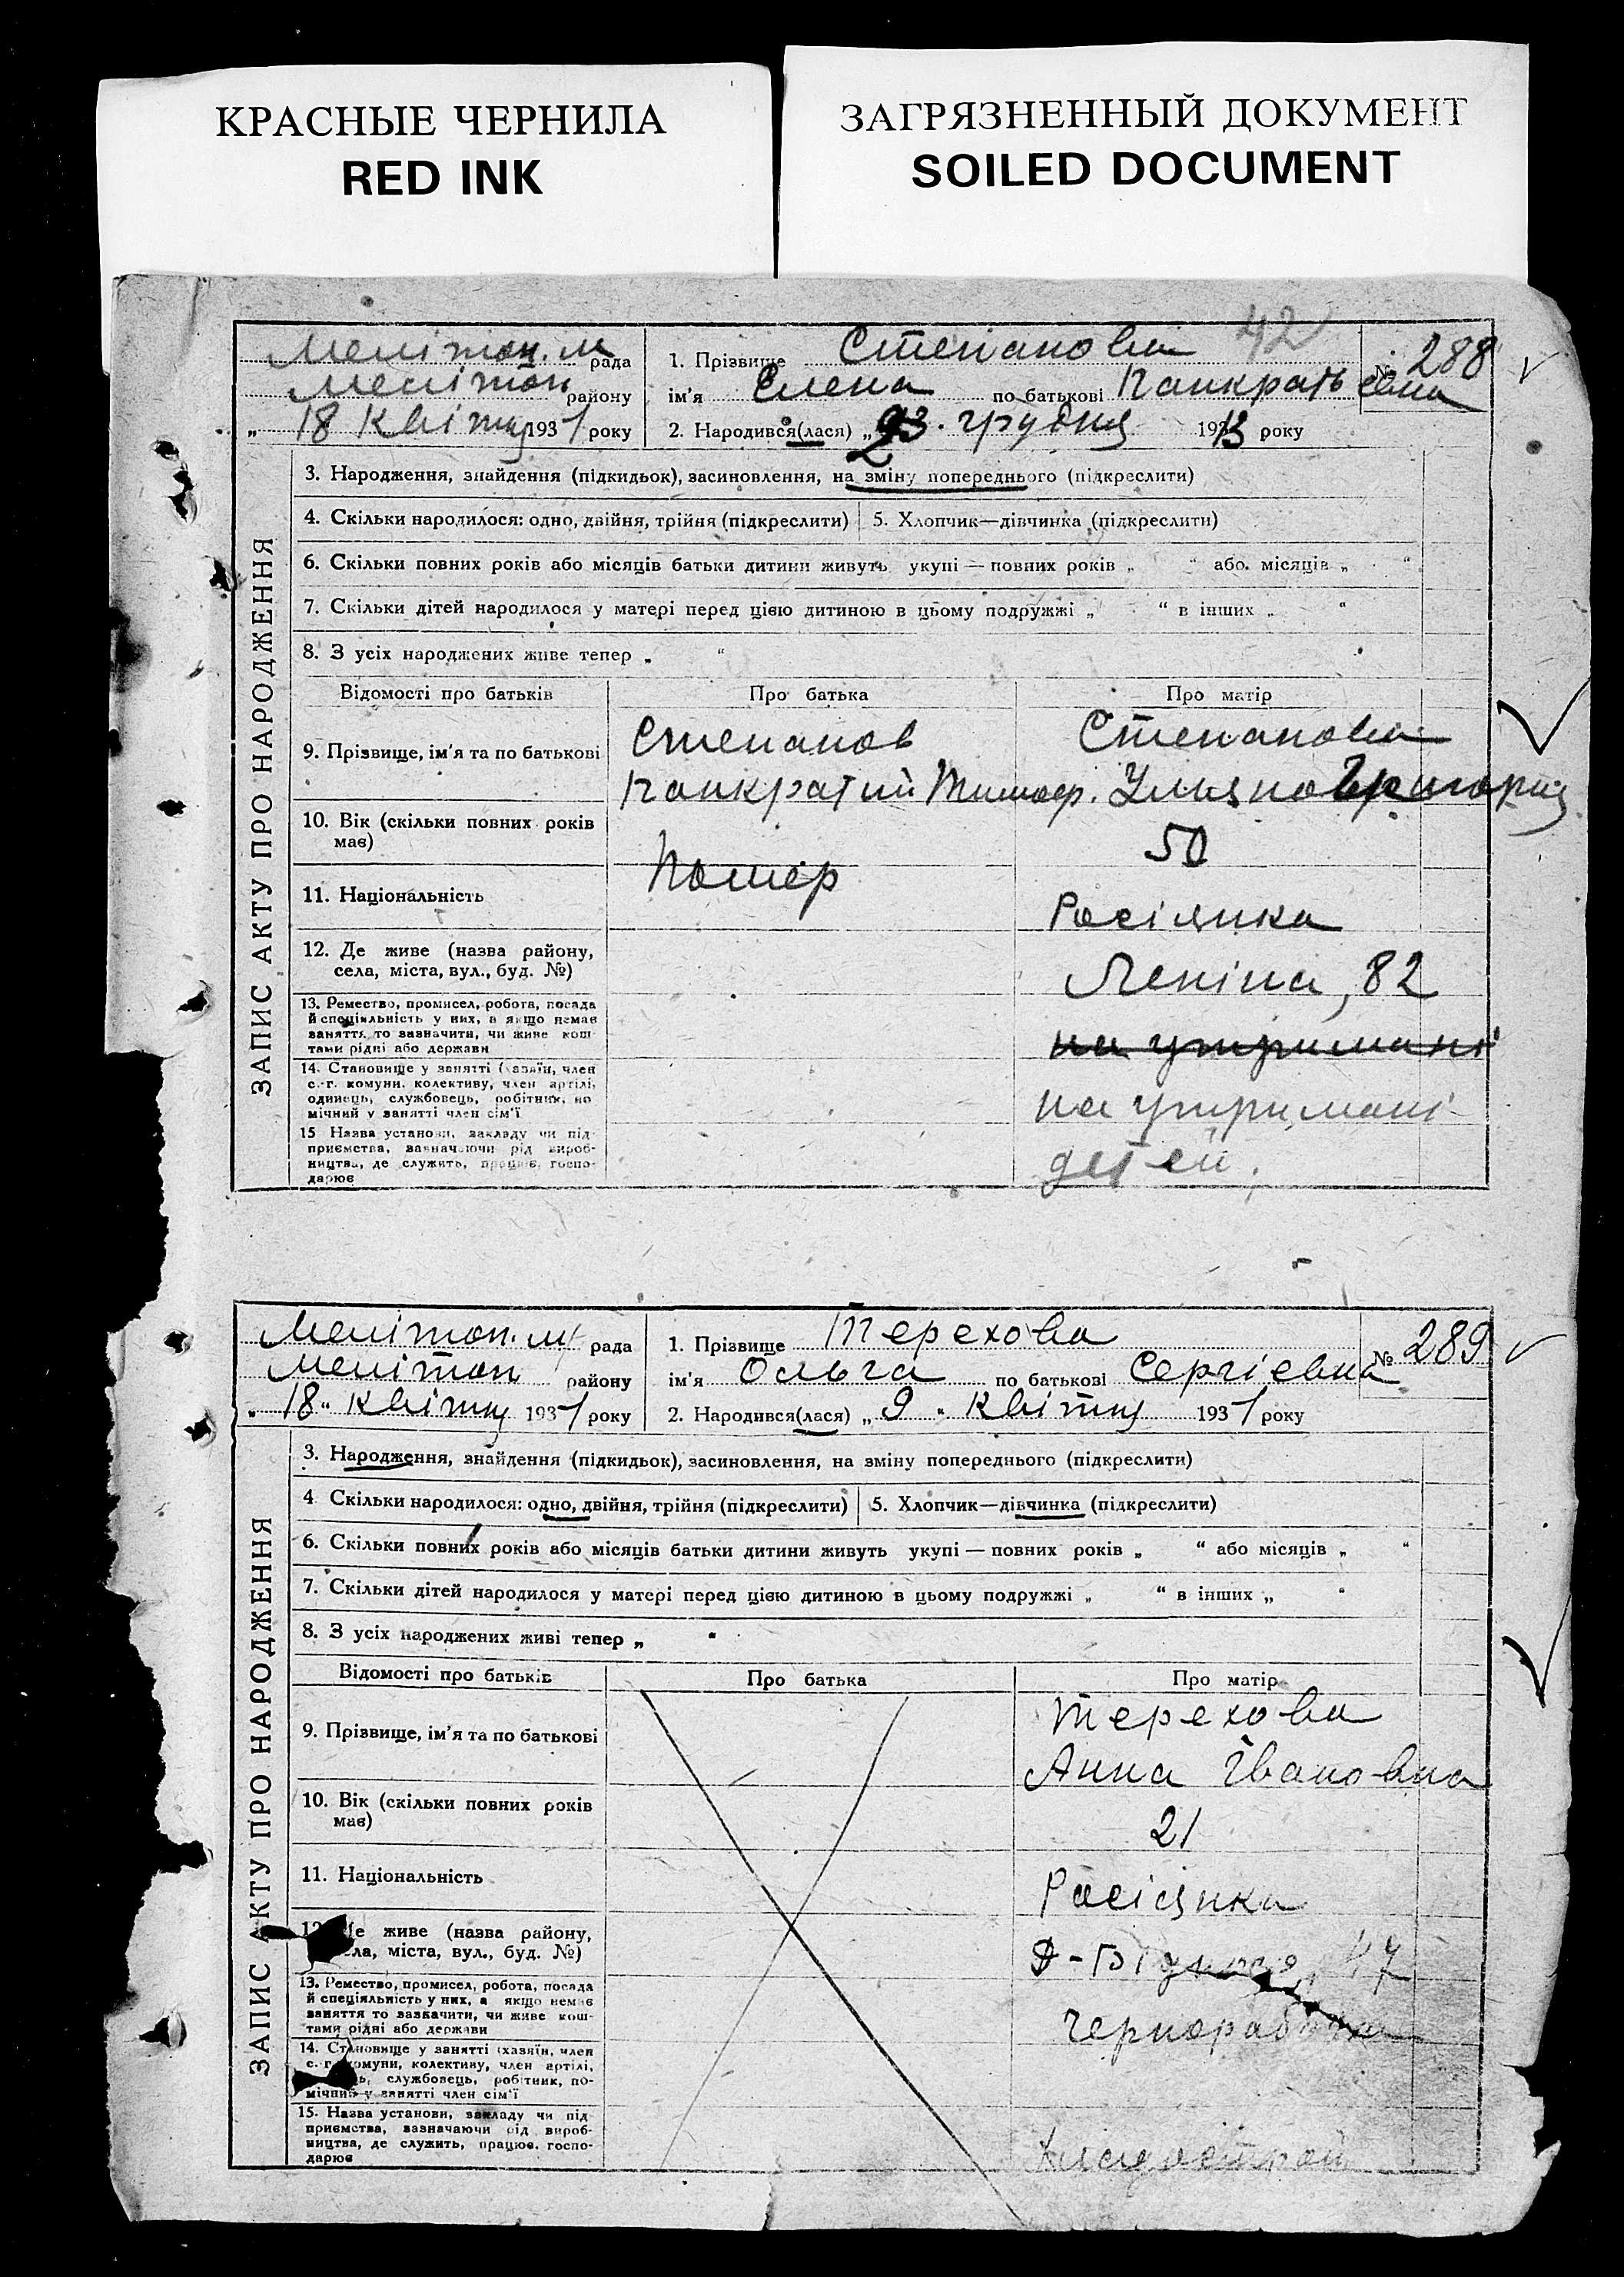 КРАСНЫЕ ЧЕРНИЛА
RED INK
ЗАГРЯЗНЕННЫЙ ДОКУМЕНТ
SOILED DOCUMENT
42
ЗАПИС АКТУ ПРО НАРОДЖЕННЯ
Мелітоп. м рада
Мелітоп району
„ 18 Квітня 1931 року
1. Прізвище Степанова
№ 288
ім'я Елена по батькові Панкратьевна
2. Народився(лася) „23. грудня 1913 року
3. Народження, знайдення (підкидьок), засиновлення, на зміну попереднього (підкреслити)
4. Скільки народилося: одно, двійня, трійня (підкреслити) 5. Хлопчик—дівчинка (підкреслити)
6. Скільки повних років або місяців батьки дитини живуть укупі — повних років „ “ або місяців „ “
7. Скільки дітей народилося у матері перед цією дитиною в цьому подружжі „ “ в інших „ “
8. З усіх народжених живе тепер „ “
Відомості про батьків Про батька Про матір
9. Прізвище, ім'я та по батькові
Степанов
Панкратий Тимоф.
Степанова
Ульяна Григорія
10. Вік (скільки повних років має)
50
11. Національність
Помер
Росіянка
12. Де живе (назва району,
села, міста, вул., буд. №)
Леніна, 82
13. Ремество, промисел, робота, посада
й спеціяльність у них, а якщо немає
заняття то зазначити, чи живе кош-
тами рідні або держави
на утримані
14. Становище у занятті (хазяїн, член
с.-г. комуни, колективу, член артілі,
одинець, службовець, робітник, по-
мічний у занятті член сім'ї
на утримані
15 Назва установи, закладу чи під-
приємства, зазначаючи рід вироб-
ництва, де служить, працює, госпо-
дарює
детей.
ЗАПИС АКТУ ПРО НАРОДЖЕННЯ
Мелітоп. м рада
Мелітоп району
„ 18 “ Квітня 1931 року
1. Прізвище Терехова
№ 289
ім'я Ольга по батькові Сергієвна
2. Народився(лася) „ 9 “ Квітня 1931 року
3. Народження, знайдення (підкидьок), засиновлення, на зміну попереднього (підкреслити)
4 Скільки народилося: одно, двійня, трійня (підкреслити) 5. Хлопчик—дівчинка (підкреслити)
6. Скільки повних років або місяців батьки дитини живуть укупі — повних років „ “ або місяців „ “
7. Скільки дітей народилося у матері перед цією дитиною в цьому подружжі „ “ в інших „ “
8. З усіх народжених живі тепер „ “
Відомості про батьків Про батька Про матір
9. Прізвище, ім'я та по батькові
Терехова
Анна Івановна
10. Вік (скільки повних років
має)
21
11. Національність
Росіянка
12. Де живе (назва району,
села, міста, вул., буд. №)
47
13. Ремество, промисел, робота, посада
й спеціяльність у них, а якщо немає
заняття то зазначити, чи живе кош-
тами рідні або держави
14. Становище у занятті (хазяїн, член
с.-г. комуни, колективу, член артілі,
службовець, робітник, по-
мічний у занятті член сім'ї
15. Назва установи, закладу чи під-
приємства, зазначаючи рід вироб-
ництва, де служить, працює, госпо-
дарює